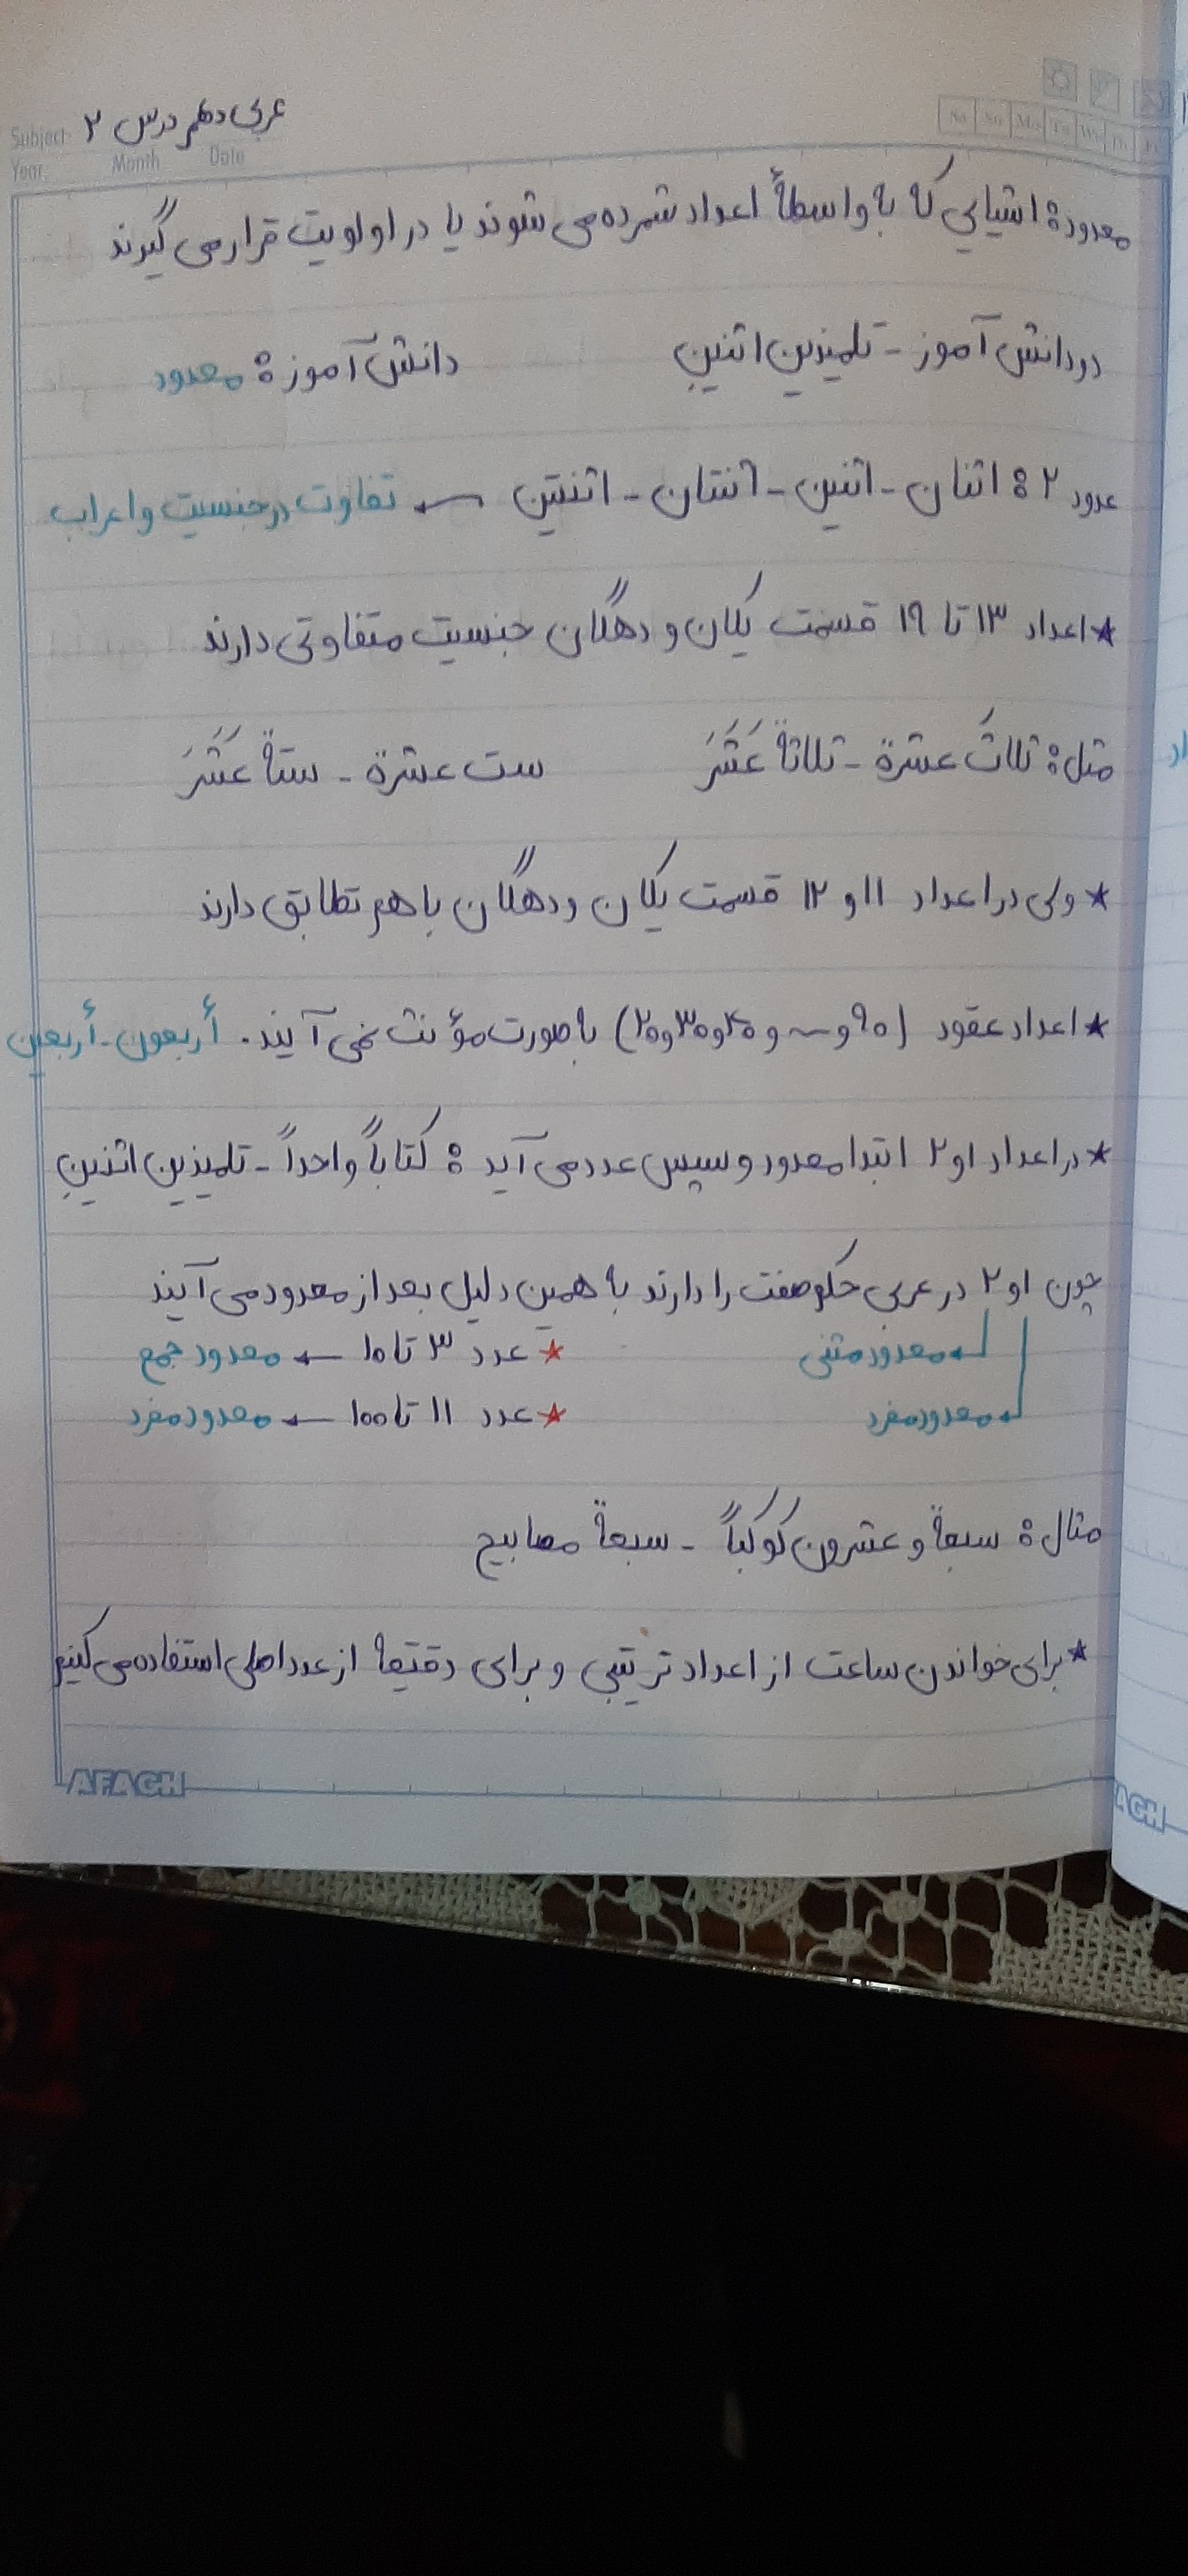 عربی دهم درس ۲
Subject:
Year: Month Date
Sa Su Mo Tu We Th Fr
معدود: اشیایی که به واسطهٔ اعداد شمرده می شوند یا در اولویت قرار می گیرند
دو دانش آموز - تلمیذین اثنین دانش آموز: معدود
عدود ۲: اثنان - اثنین - اثنتان - اثنتین ← تفاوت در جنسیت و اعراب
★ اعداد ۱۳ تا ۱۹ قسمت یکان و دهگان جنسیت متفاوتی دارند
مثل: ثلاثَ عشرة - ثلاثة عَشَرَ ست عشرة - ستة عَشَرَ
★ ولی در اعداد ۱۱ و ۱۲ قسمت یکان و دهگان با هم تطابق دارند
★ اعداد عقود (۲۰ و ۳۰ و ۴۰ و ~ و ۹۰) به صورت مؤنث نمی آیند. أربعون - أربعین
★ در اعداد ۱ و ۲ ابتدا معدود و سپس عدد می آید: کتاباً واحداً - تلمیذین اثنینِ
چون ۱ و ۲ در عربی حکم صفت را دارند به همین دلیل بعد از معدود می آیند
↲ معدود مثنی ★ عدد ۳ تا ۱۰ ← معدود جمع
↲ معدود مفرد ★ عدد ۱۱ تا ۱۰۰ ← معدود مفرد
مثال: سبعة و عشرون کوکباً - سبعة مصابیح
★ برای خواندن ساعت از اعداد ترتیبی و برای دقیقه از عدد اصلی استفاده می کنیم
AFAGH